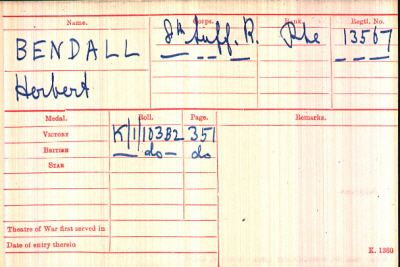 Name. Corps. Rank. Regtl. No.
BENDALL Suff. R. Pte 13567
Herbert
Medal. Roll. Page. Remarks.
VICTORY K/1/103B2 351
BRITISH —do— do
STAR
Theatre of War first served in
Date of entry therein
K. 1380